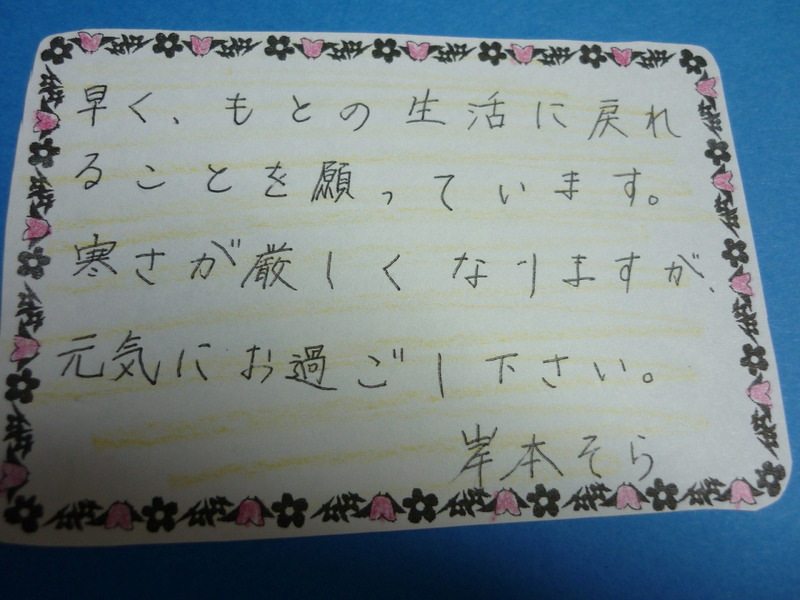 早く、もとの生活に戻れ
ることを願っています。
寒さが厳しくなりますが、
元気にお過ごし下さい。
岸本そら